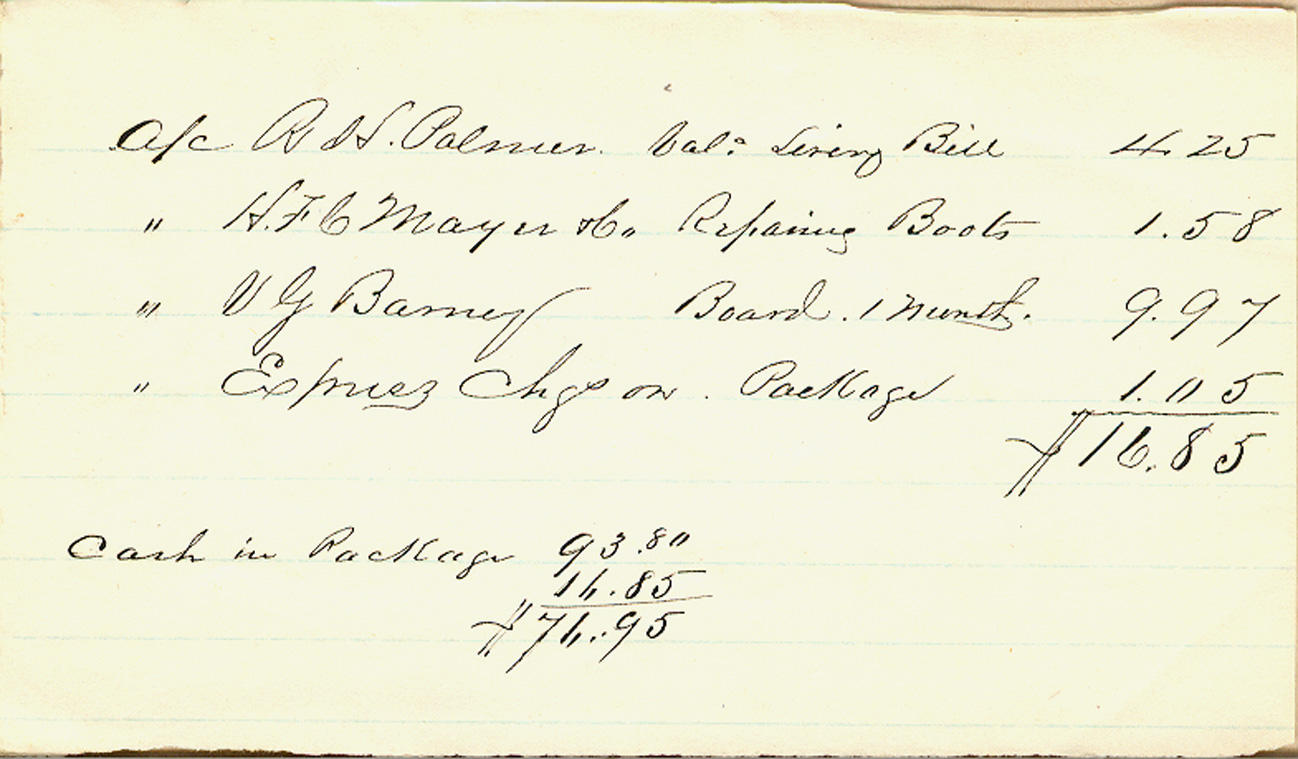 a/c R d H. Palmer. Bal: Livery Bill 4.25
" H. F. C Mayer & Co Repairing Boots 1.58
" V G Barney Board. 1 Month. 9.97
" Express Chgs on. Package 1.05
$16.85
Cash in Package 93.80
16.85
$76.95